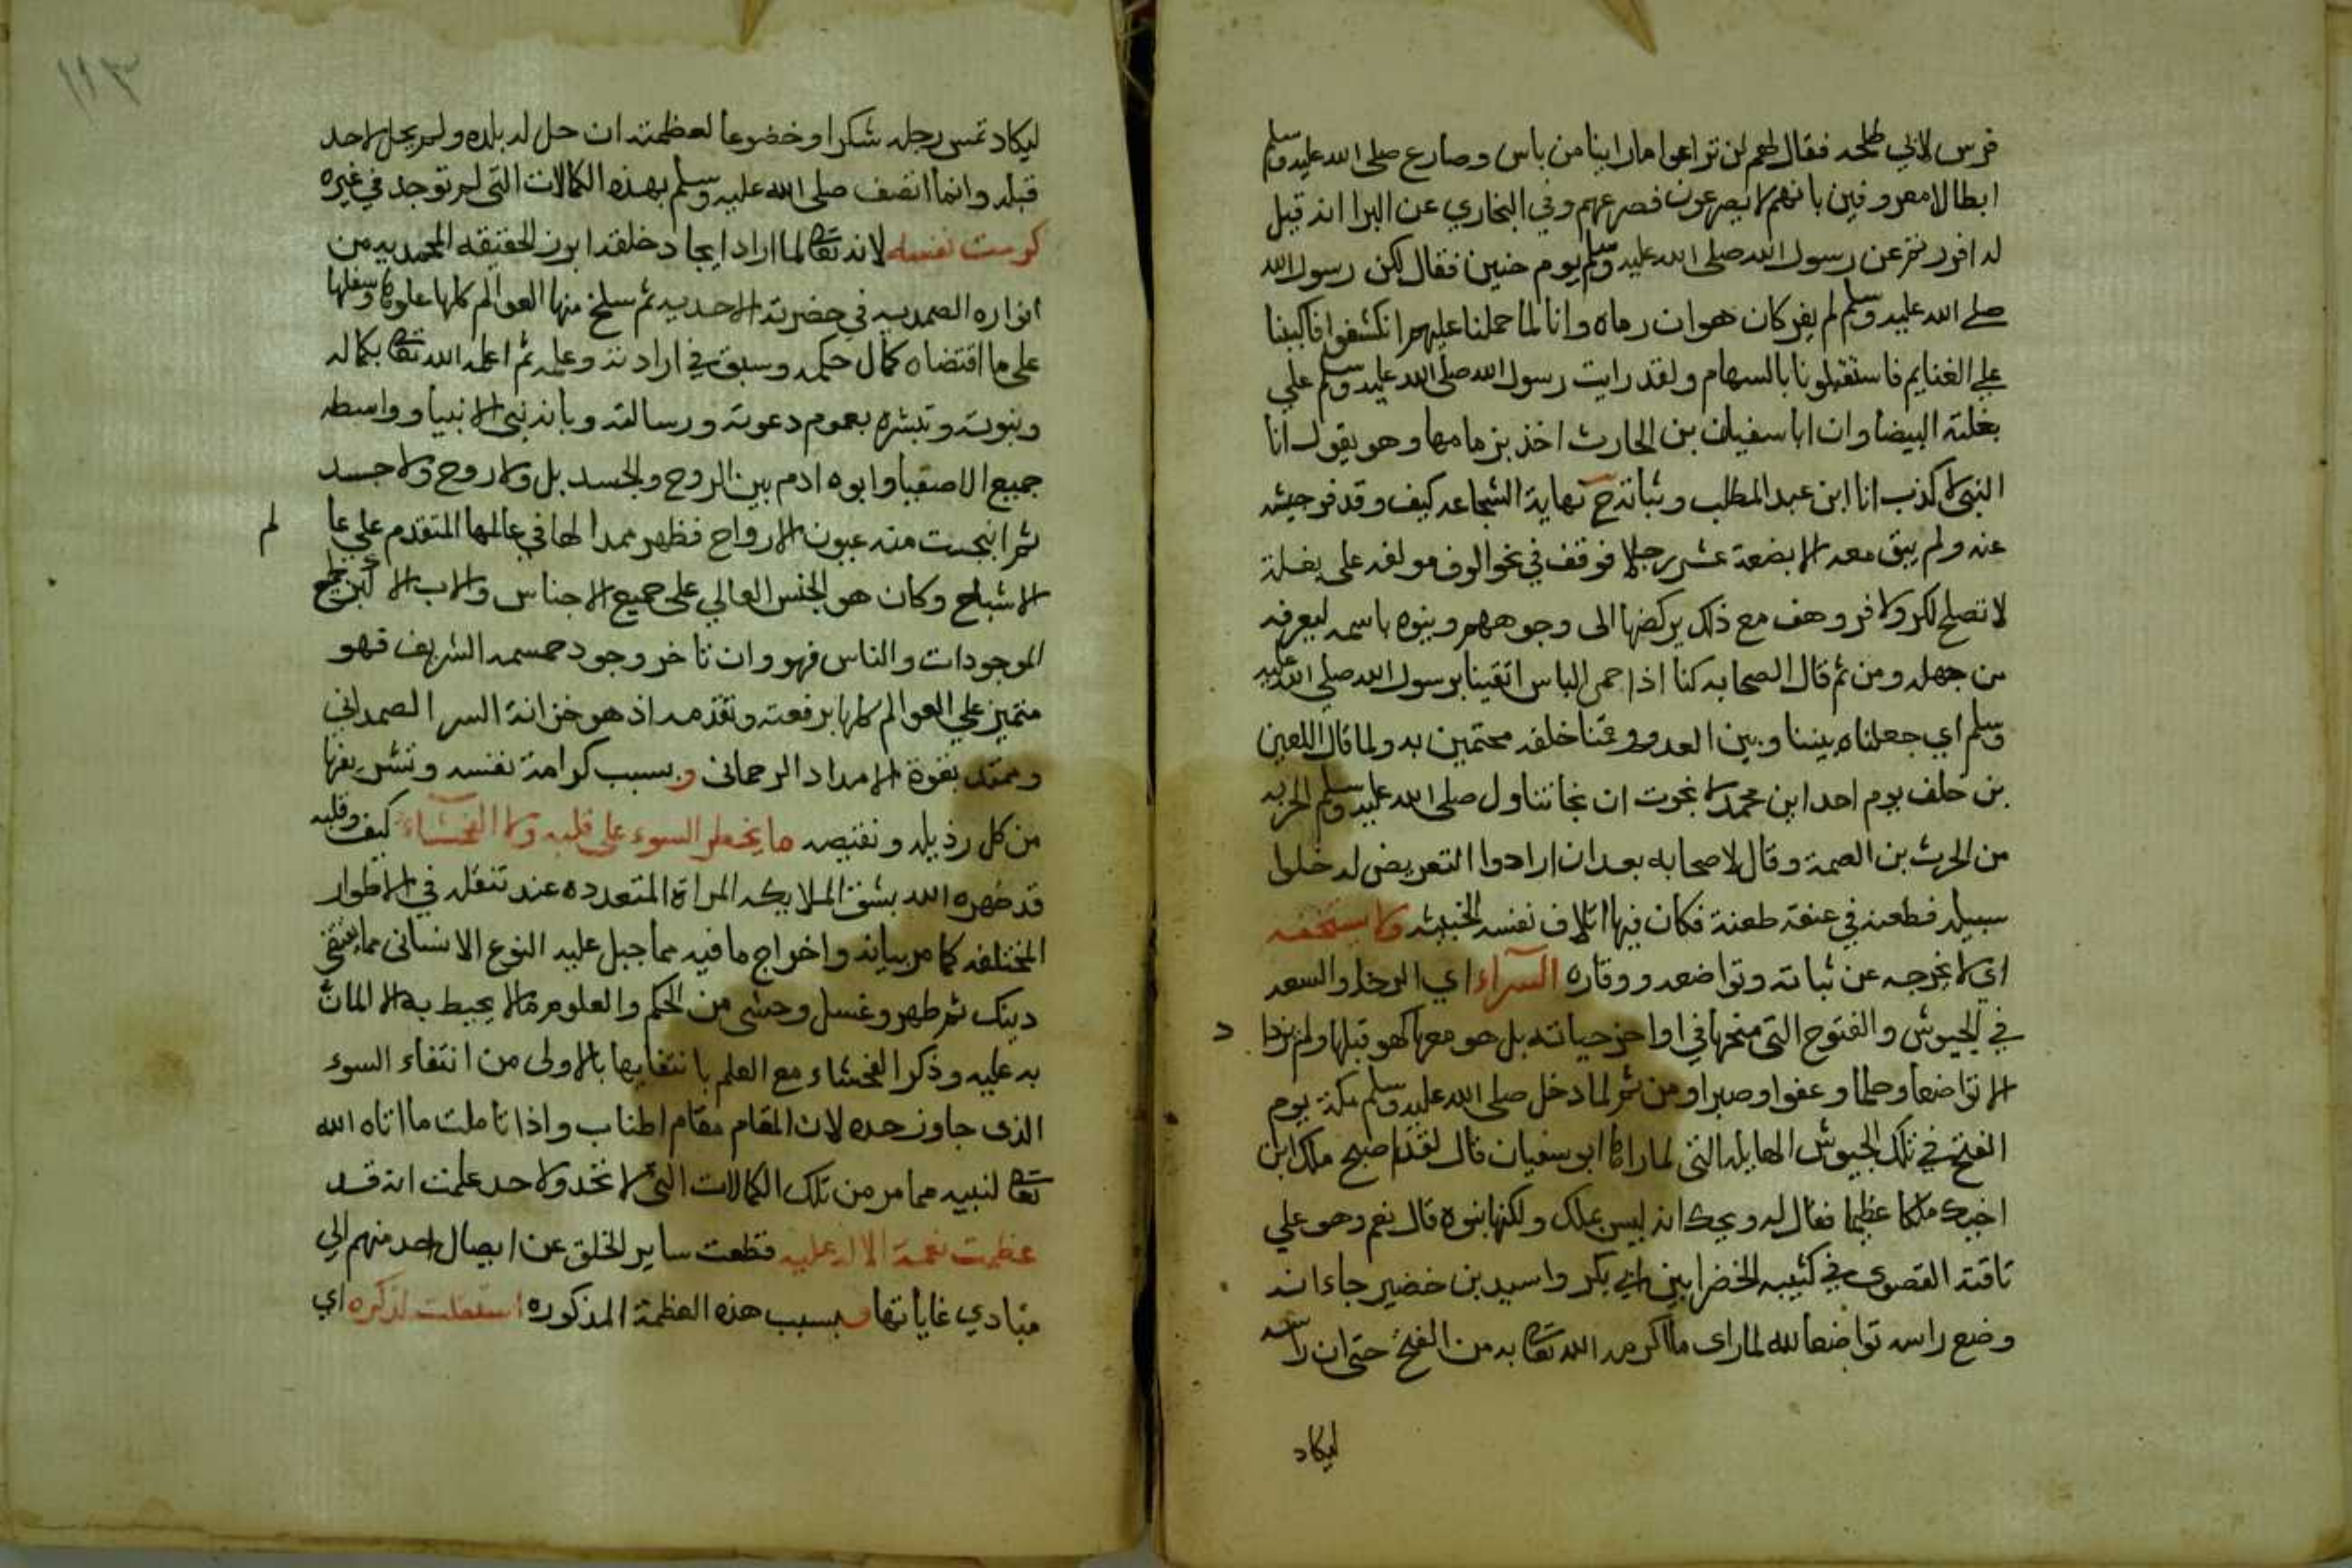 فرس لابي طلحه فقال لهم لن تراعوا ما راينا من باس وصارع صلى الله عليه وسلم
ابطالا معروفين بانهم لا يصرعون فصرعهم وفي البخاري عن البرا انه قيل
له افررتم عن رسول الله صلى الله عليه وسلم يوم حنين فقال لكن رسول الله
صلى الله عليه وسلم لم يفر كان هوازن رماه وانا لما حملنا عليهم انكشفوا فاكببنا
على الغنايم فاستقبلونا بالسهام ولقد رايت رسول الله صلى الله عليه وسلم على
بغلته البيضا وان ابا سفيان بن الحارث اخذ بزمامها وهو يقول انا
النبي لا كذب انا ابن عبد المطلب وثباته ح نهاية الشجاعه كيف وقد فر جيشه
عنه ولم يبق معه الا بضعة عشر رجلا فوقف في نحو الوف مولفه على بغلة
لا تصلح لكر ولا فر وهف مع ذلك يركضها الى وجوههم وينوه باسمه ليعرفه
من جهله ومن ثم قال الصحابه كنا اذا حمى الباس اتقينا برسول الله صلى الله عليه
وسلم اي جعلناه بيننا وبين العدو ووقفنا خلفه محتمين به ولما قال اللعين
بن خلف يوم احد اين محمد لا نجوت ان نجا تناول صلى الله عليه وسلم الحربه
من الحرث بن الصمة وقال لاصحابه بعد ان ارادوا التعريض له خلوا
سبيله فطعنه في عنقه طعنة فكان فيها اتلاف نفسه الخبيثه ولا يستخفه
اي لا يخرجه عن ثباته وتواضعه ووقاره السراء اي الرخا والسعه
في الجيوش والفتوح التي منحها في اواخر حياته بل هو معها كهو قبلها ولم يزد
الا تواضعا وحلما وعفوا وصبرا ومن ثم لما دخل صلى الله عليه وسلم مكة يوم
الفتح في تلك الجيوش الهايله التي لما راها ابو سفيان قال لقد اصبح ملك ابن
اخيك ملكا عظيما فقال له ويحك انه ليس بملك ولكنها نبوه قال نعم وهو على
ناقته القصوى في كتيبه الخضرا بين ابي بكر واسيد بن خضير جاء انه
وضع راسه تواضعا لله لما راى ما اكرمه الله تعالى به من الفتح حتى ان راسه
ليكاد
١١٣
ليكاد تمس رجله شكرا وخضوعا لعظمته ان حل له بلده ولم يحل لاحد
قبله وانما اتصف صلى الله عليه وسلم بهذه الكمالات التي لم توجد في غيره
كرمت نفسه لانه تعالى لما اراد ايجاد خلقه ابرز الحقيقه المحمديه من
انواره الصمديه في حضرته الاحديه ثم سلخ منها العوالم كلها علوها وسفلها
على ما اقتضاه كمال حكمه وسبق في ارادته وعلمه ثم اعلمه الله تعالى بكماله
ونبوته وتبشره بعموم دعوته ورسالته وبانه نبي الانبيا وواسطه
جميع الاصفيا وابوه ادم بين الروح والجسد بل ولا روح ولا جسد
ثم انبجست منه عيون الارواح فظهر ممدا لها في عالمها المتقدم على عا
لم
الاشباح وكان هو الجنس العالي على جميع الاجناس والاب الاكبر لجميع
الموجودات والناس فهو وان تاخر وجود جسمه الشريف فهو
متميز على العوالم كلها برفعته وتقدمه اذ هو خزانة السر الصمداني
وممتد بقوة الامداد الرحماني وبسبب كرامة نفسه وتشريفها
من كل رذيله ونقيصه ما يخطر السوء على قلبه ولا الفحشاء كيف وقلبه
قد طهره الله بشق الملايكه المراة المتعدده عند تنقله في الاطوار
المختلفه كما مر بيانه واخراج ما فيه مما جبل عليه النوع الانساني مما
دينك ثم طهر وغسل وحشي من الحكم والعلوم مالا يحيط به الا المان
به عليه وذكر الفحشاء مع العلم بانتفايها بالاولى من انتفاء السوء
الذي جاوز حده لان المقام مقام اطناب واذا تاملت ما اتاه الله
تعالى لنبيه مما مر من تلك الكمالات التي لا تحد ولا حد علمت انه قد
عظمت نعمة الاله عليه فقطعت ساير الخلق عن ايصال احد منهم الى
مبادي غاياتها فبسبب هذه العظمة المذكوره استقلت لذكره اي